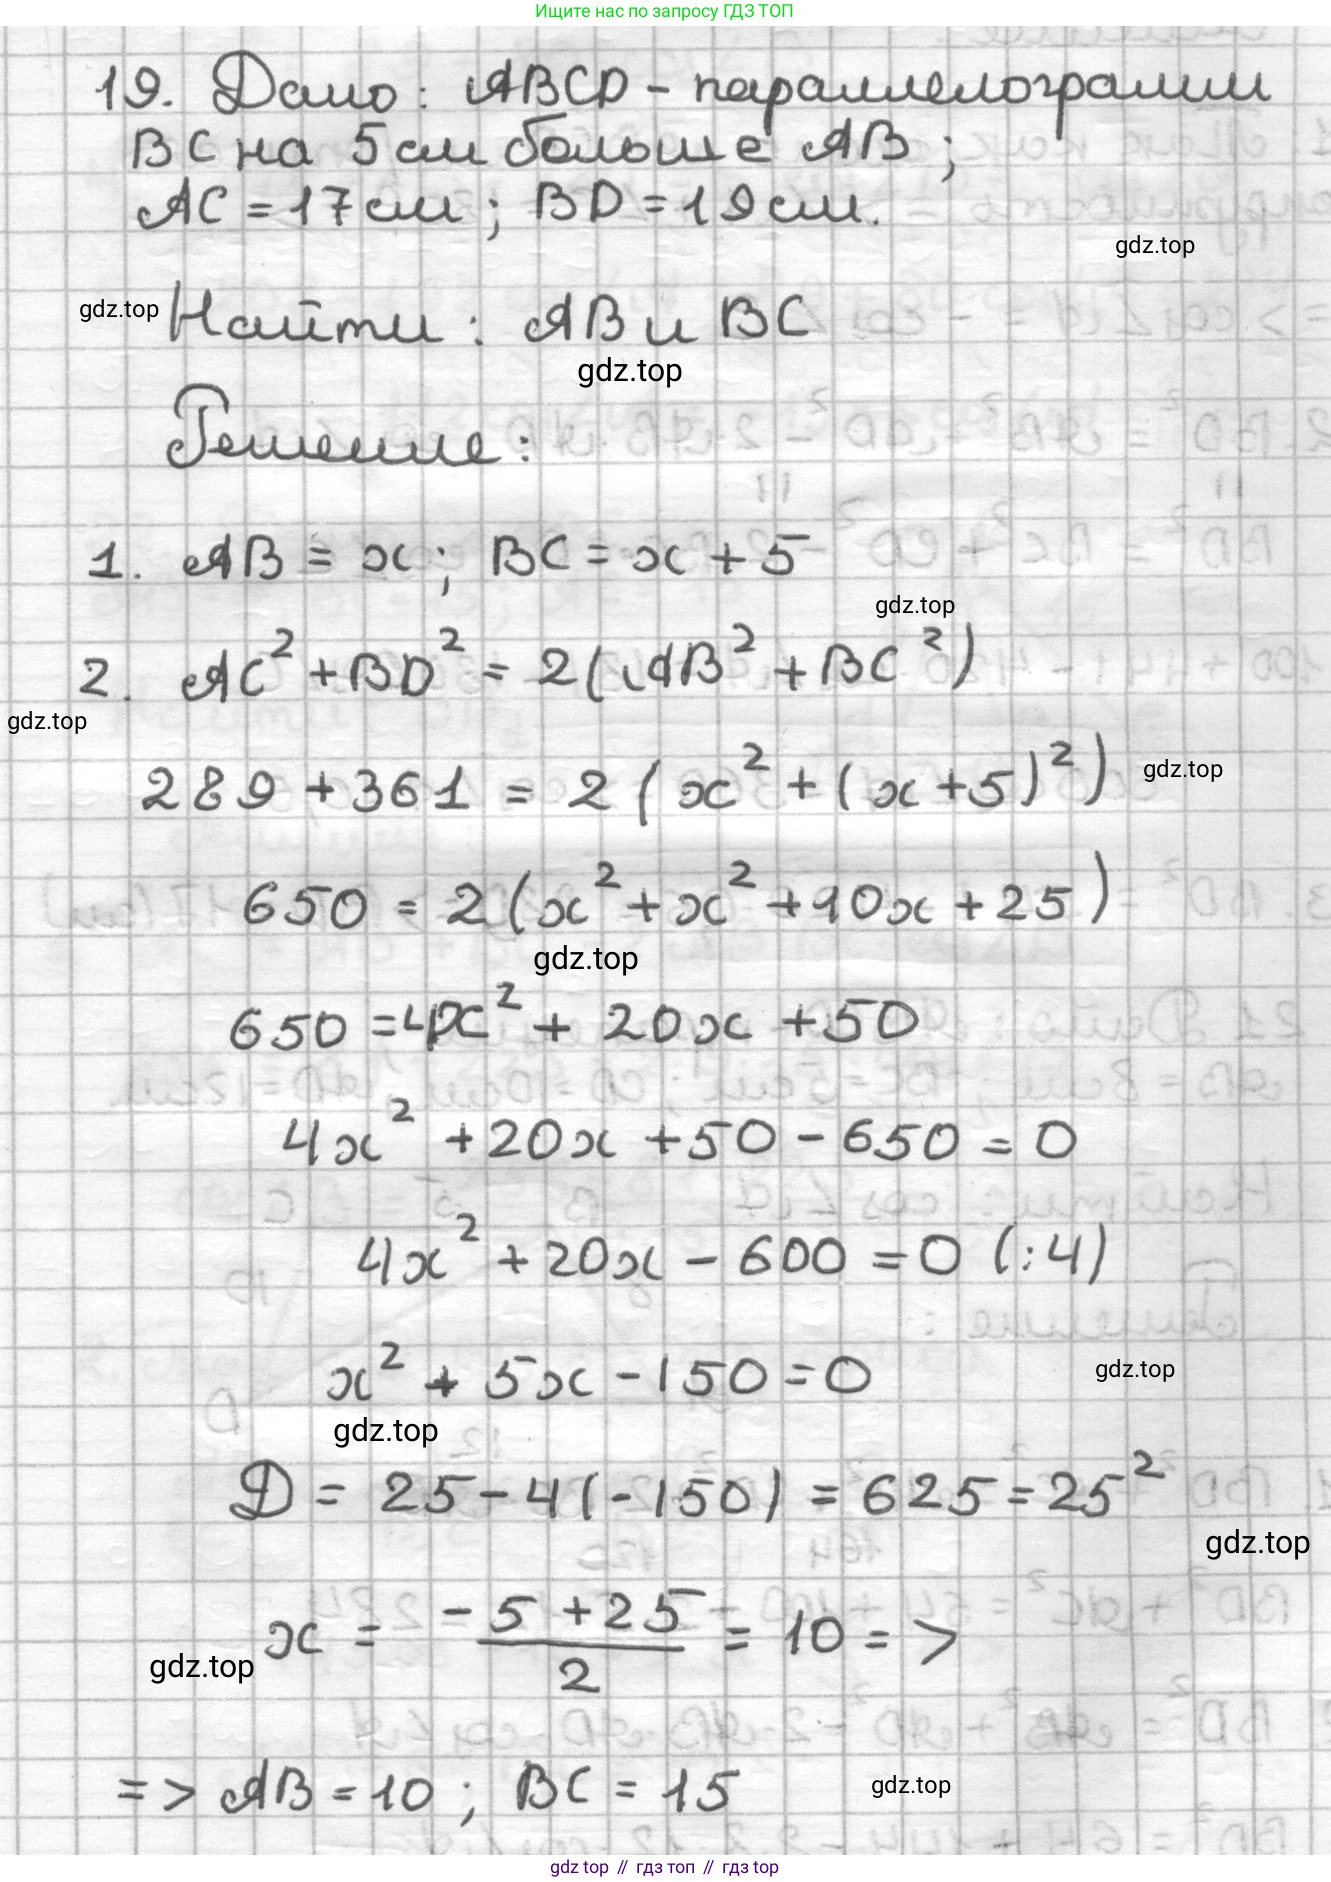 Ищите нас по запросу ГДЗ ТОП
19. Дано: ABCD - параллелограмм
BC на 5 см больше AB;
AC = 17 см; BD = 19 см.
gdz.top
gdz.top
Найти: AB и BC
gdz.top
Решение:
1. AB = x; BC = x + 5
gdz.top
2. AC² + BD² = 2(AB² + BC²)
gdz.top
289 + 361 = 2(x² + (x+5)²)
gdz.top
650 = 2(x² + x² + 10x + 25)
gdz.top
650 = 4x² + 20x + 50
4x² + 20x + 50 - 650 = 0
4x² + 20x - 600 = 0 (:4)
x² + 5x - 150 = 0
gdz.top
gdz.top
Д = 25 - 4(-150) = 625 = 25²
gdz.top
x = (-5 + 25)/2 = 10 =>
gdz.top
=> AB = 10; BC = 15
gdz.top
gdz top // гдз топ // гдз top